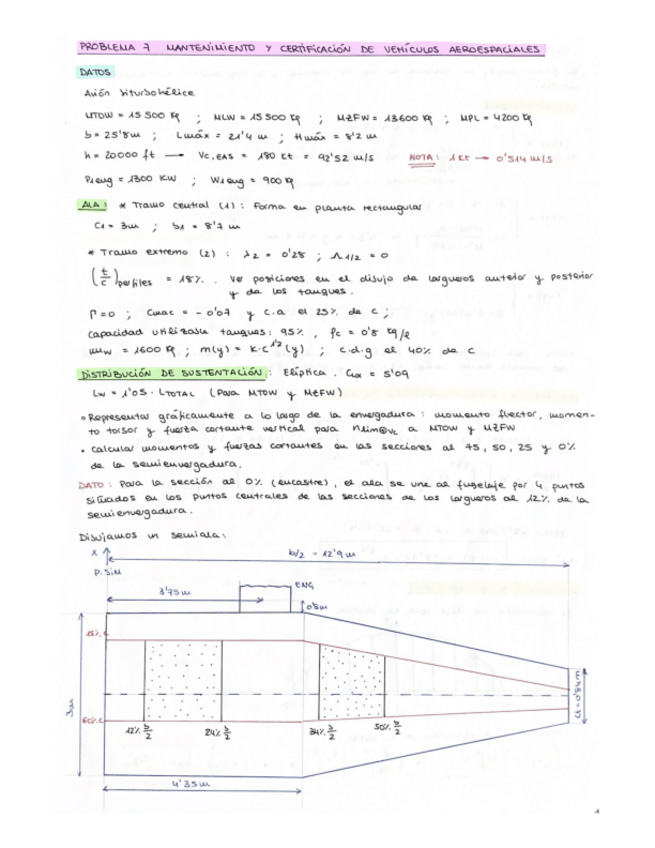 PROBLEMA 7 MANTENIMIENTO Y CERTIFICACIÓN DE VEHÍCULOS AEROESPACIALES
DATOS
Avión biturbohélice
MTOW = 15 500 kg ; MLW = 15 500 kg ; MZFW = 13600 kg ; MPL = 4200 kg
b = 25'8 m ; Lmáx = 21'4 m ; Hmáx = 8'2 m
h = 20000 ft → Vc,EAS = 180 kt = 92'52 m/s NOTA: 1 kt → 0'514 m/s
P1 eng = 1300 KW ; W1 eng = 900 kg
ALA: * Tramo central (1): Forma en planta rectangular
C1 = 3m ; b1 = 8'7 m
* Tramo extremo (2): λ2 = 0'28 ; Λ1/2 = 0
(t/c)perfiles = 18%. Ver posiciones en el dibujo de largueros anterior y posterior
y de los tanques.
Γ = 0 ; Cmac = -0'07 y c.a el 25% de c ;
Capacidad utilizable tanques: 95% , ρc = 0'8 kg/l
mw = 1600 kg ; m(y) = k·c^1/2 (y) ; c.d.g el 40% de c
DISTRIBUCIÓN DE SUSTENTACIÓN: Elíptica. CLα = 5'09
Lw = 1'05 · LTOTAL (Para MTOW y MZFW)
• Representar gráficamente a lo largo de la envergadura: momento flector, momen-
to torsor y fuerza cortante vertical para nlim@Vc a MTOW y MZFW
• Calcular momentos y fuerzas cortantes en las secciones al 75, 50, 25 y 0%
de la semienvergadura.
DATO: Para la sección al 0% (encastre), el ala se une al fuselaje por 4 puntos
situados en los puntos centrales de las secciones de los largueros al 12% de la
semienvergadura.
Dibujamos un semiala:
x b/2 = 12'9 m
P. Sim
3'75m ENG
0'8m
15% C
3m
60% C
Ct = 0'84m
12% b/2 24% b/2 34% b/2 50% b/2
4'35m
1